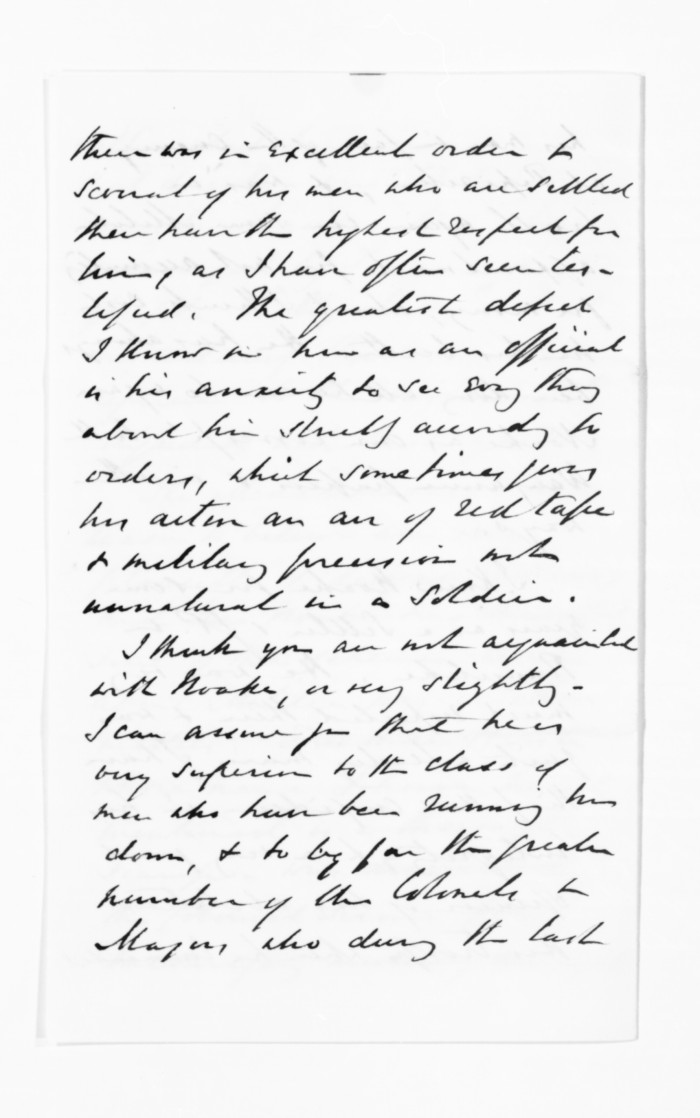 there was in excellent order &
several of his men who are settled
there have the highest respect for
him, as I have often seen tes-
tified. The greatest defect
I know in him as an official
is his anxiety to see every thing
about him strictly according to
orders, which sometimes gives
his action an air of red tape
& military precision not
unnatural in a soldier.
I think you are not acquainted
with Noake, or very slightly -
I can assure you that he is
very superior to the class of
men who have been running him
down, & to by far the greater
number of the Colonels &
Majors who during the last